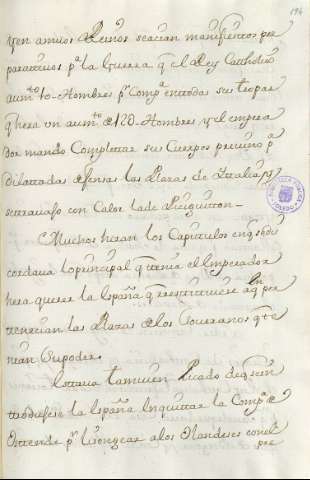 194
y en amvos Reinos seacian manifiestos pre
parativos pª la Guerra q el Rey Catholico
aumto 10-Hombres pr Compª entodas sus tropas
q hera un aumto de 12D-Hombres y el empera
dor mando Complettar sus Cuerpos previno pª
dilattada defensa las Plazas de Ittalia, y
settravajo con Calor la de Pizguitton-
Muchos heran los Capitulos enq sedis
cordava lo principal q tenia el Emperador
hera querer la España q resttittuiese a qn per
tenecian las Plazas de los Soveranos q te
nian Supoder.
Esttava tamvien picado de q sein
trodujese la España In quittar la Compª de
Ostende pr lisongear a los Olandeses con el
pre